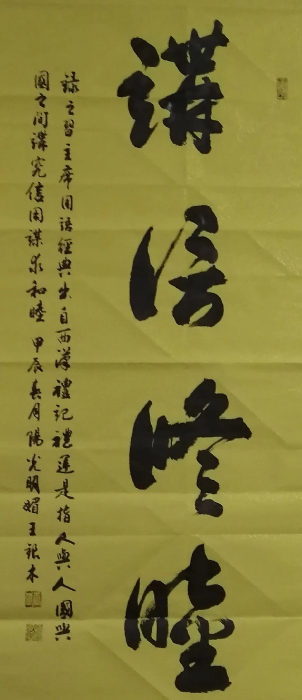 講信修睦
錄之習主席用語經典出自西漢禮記禮運是指人與人國與
國之間講究信用謀求和睦 甲辰春月陽光明媚王銀木